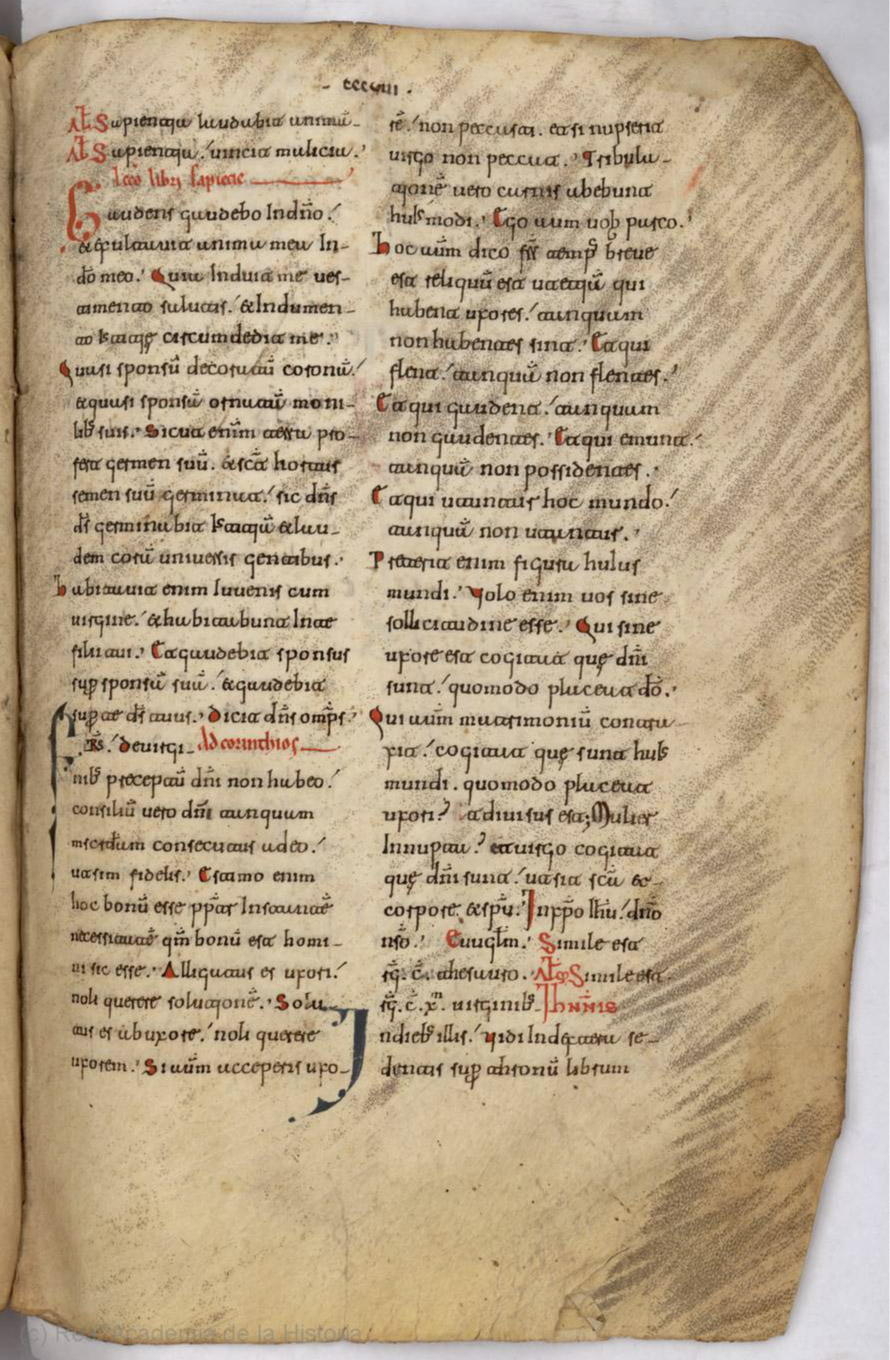 - ccccviii .
Al̄ Sapientia laudabit animā
Al̄ Sapientia / uincit malicia.
lc̄o libri sapiecie
Gaudens gaudebo In dn̄o.
& exultauit anima mea In
dō meo. Quia Induit me ues-
timento salutis. & Indumen-
to iustitię circumdedit me.
Quasi sponsū decoratū coronā.
& quasi sponsā ornatā moni-
lib; suis. Sicut enim terra pro-
fert germen suū. & sic̄ hortus
semen suū germinat. sic dn̄s
ds̄ germinabit iustitiā & lau-
dem corā uniuersis gentibus.
habitauit enim Iuuenis cum
uirgine. & habitabunt In te
filii tui. Et gaudebit sponsus
sup sponsā suā. & gaudebit
sup te ds̄ tuus. Dicit dn̄s omp̄s
Frs̄. de uirgi- Ad corinthios
nib; preceptū dn̄i non habeo.
consiliū uero dn̄i tanquam
misc̄dam consecutus a deo.
ut sim fidelis. Estimo enim
hoc bonū esse ppt̄er Instantē
necessitatē qm̄ bonū est homi-
ni sic esse. Alligatus es uxori.
noli querere solutionē. Solu-
tus es ab uxore. noli querere
uxorem. Si aūm acceperis uxo-
rē. non peccasti. et si nupserit
uirgo non peccat. Tribula-
tionē uero carnis habebunt
hui; modi. Ego aum uob parco.
Hoc aūm dico frs̄ temp; breue
est reliquū est ut et qui
habent uxores. tanquam
non habentes sint. Et qui
flent. tanquā non flentes.
Et qui gaudent. tanquam
non gaudentes. Et qui emunt.
tanquā non possidentes.
Et qui utuntur hoc mundo.
tanquā non utuntur.
Preterit enim figura huius
mundi. Volo enim uos sine
sollicitudine esse. Qui sine
uxore est cogitat quę dn̄i
sunt. quomodo placeat dō.
Qui aūm matrimoniū contra-
xit. cogitat quę sunt hui;
mundi. quomodo placeat
uxori. & diuisus est; Mulier
Innupta. et uirgo cogitat
quę dn̄i sunt. ut sit scā &
corpore. & spū. In xp̄o Ihū. dn̄o
nr̄o. Euuglm̄. Simile est
rg. c̄. thesauro. Al̄. Simile est
rg. c̄. x. uirginib;. Iohn̄nis
In dieb; illis. Vidi In dextera se-
dentis sup thronū librum